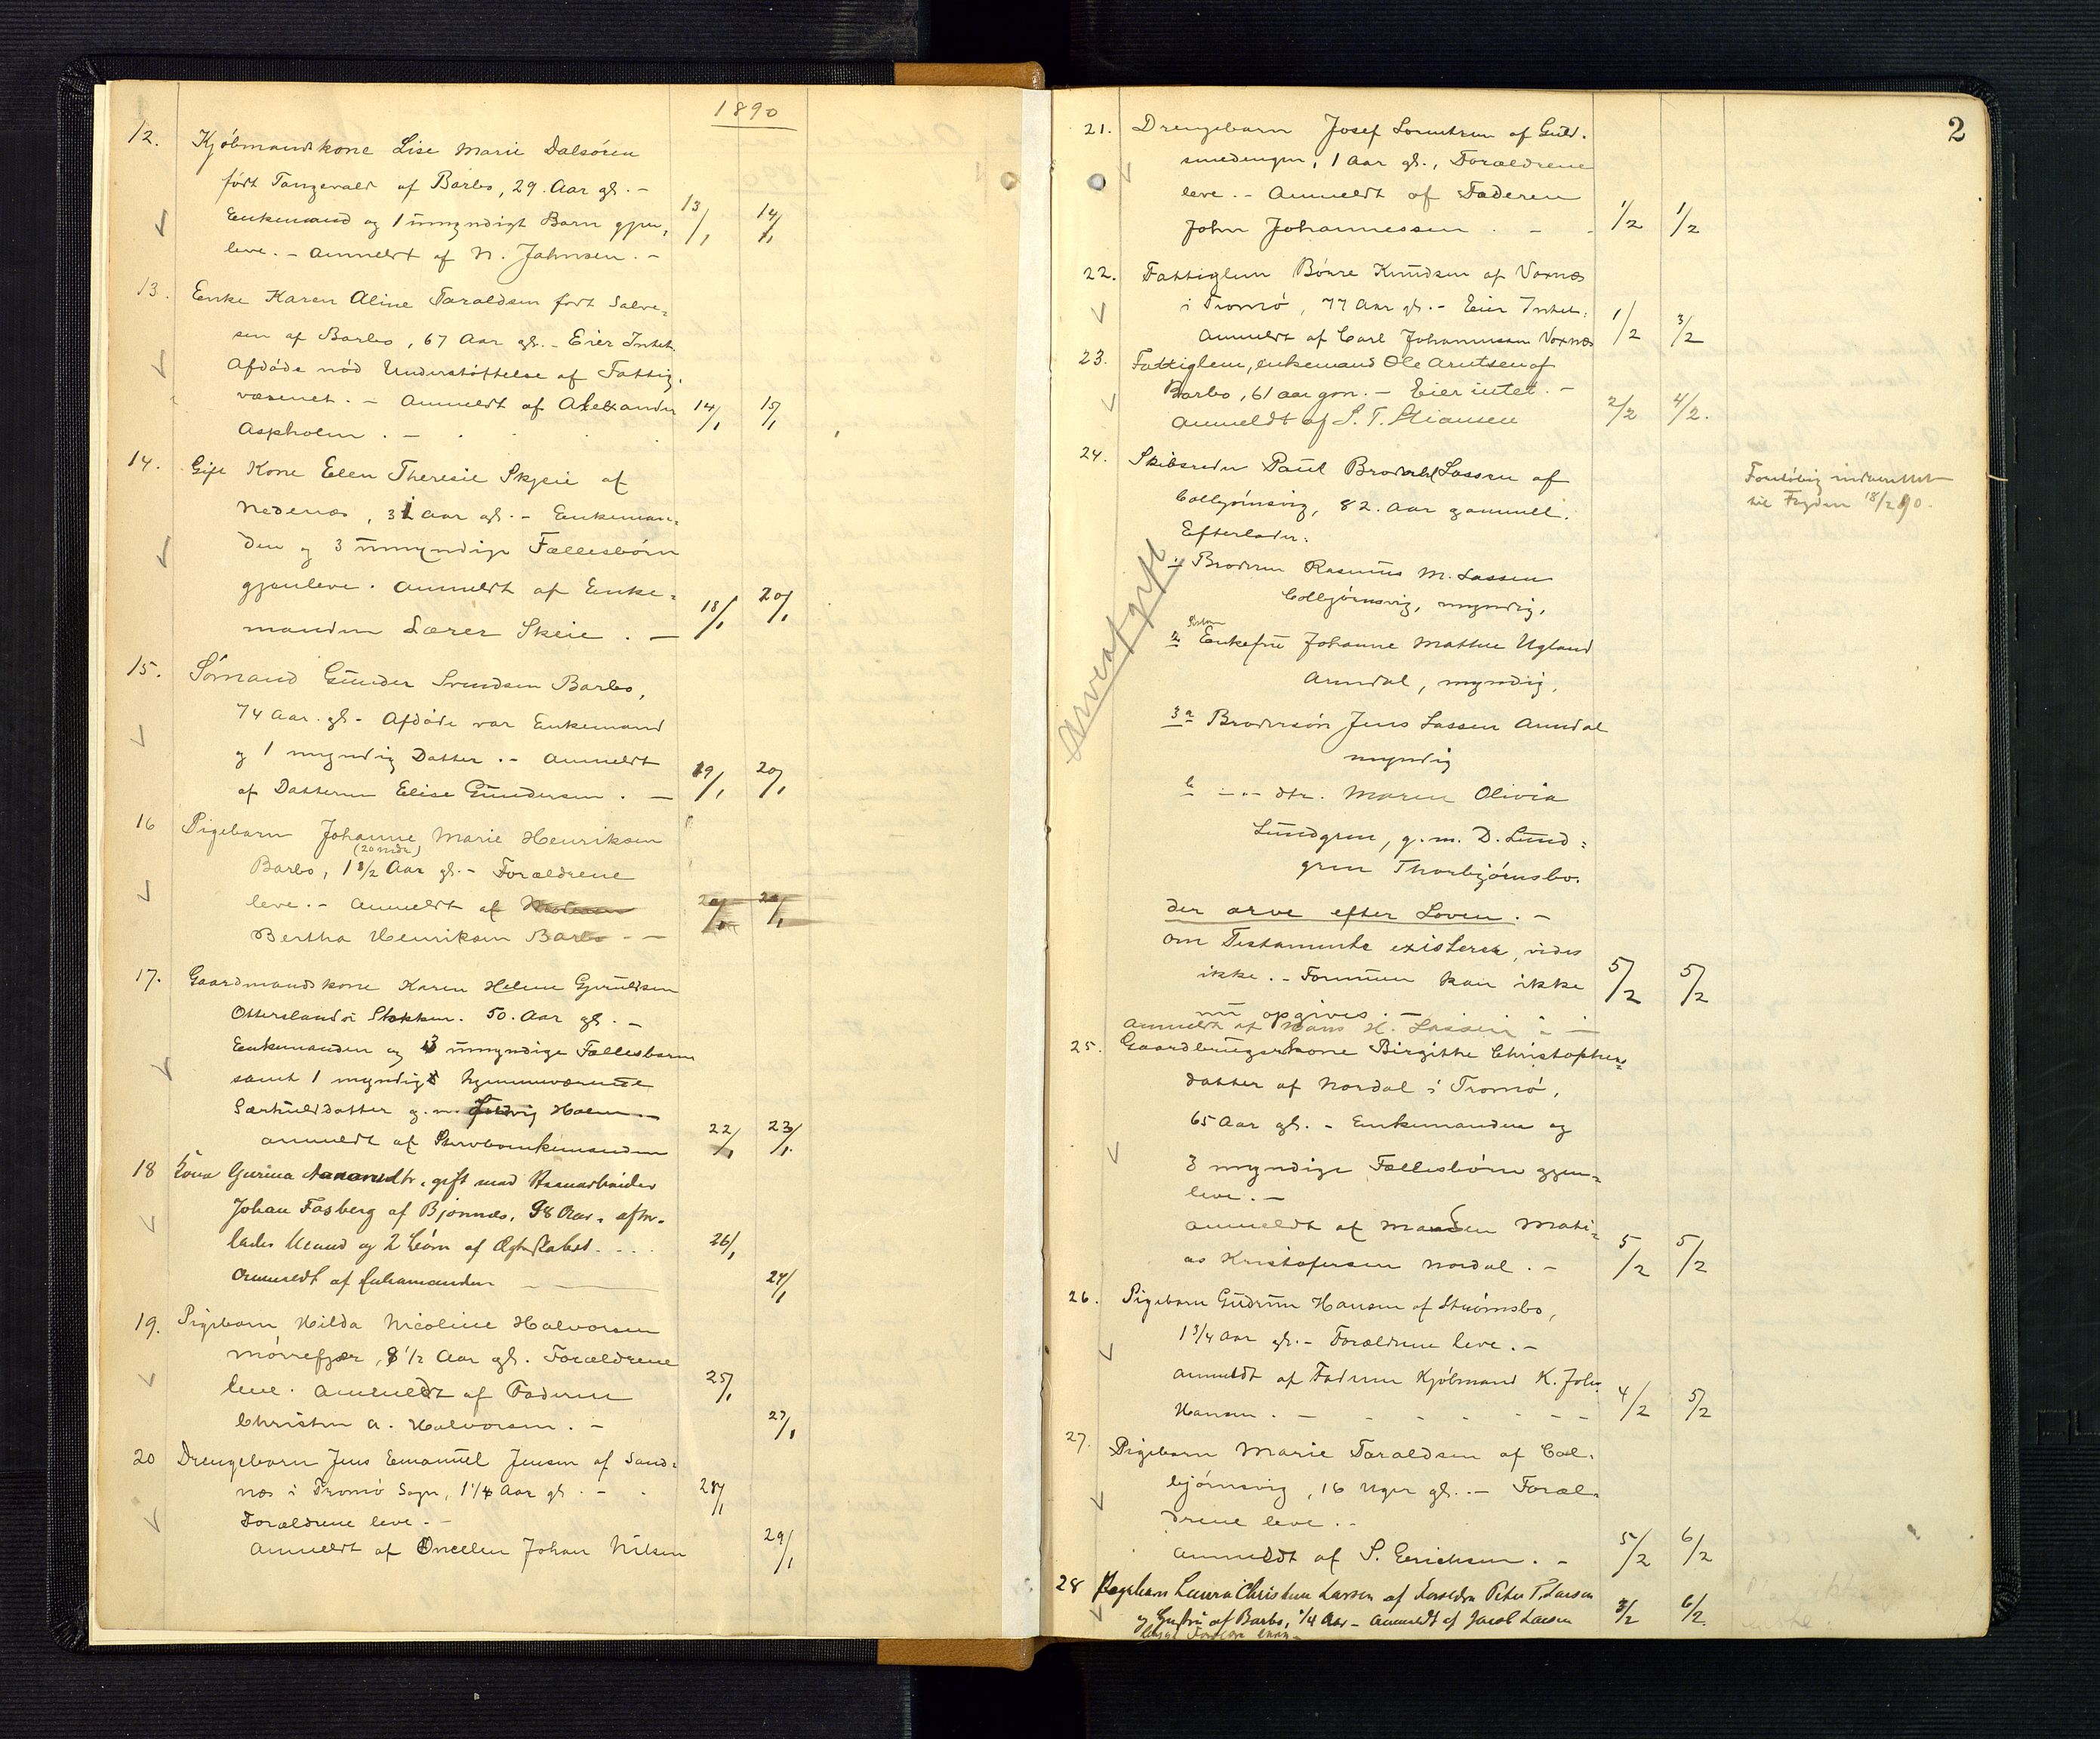 1890
12. Kjöbmandskone Lise Marie Dalsören
født Tangevald af Barbo, 29. Aar gl. -
Enkemand og 1 umyndigt Barn gjen-
leve. - Anmeldt af N. Jahnsen. - 13/1 14/1
13. Enke Karen Aline Taraldsen født Salve-
sen af Barbo, 67 Aar gl. - Eier Intet.
Afdöde nöd Understöttelse af Fattig-
væsenet. - Anmeldt af Alexander 14/1 15/1
Aspholm. -
14. Gift Kone Elen Theresie Skjeie af
Nedenes, 31 Aar gl. - Enkeman-
den og 3 umyndige Fællesbörn
gjenleve. Anmeldt af Enke-
manden Lærer Skeie. - 18/1 20/1
15. Sömand Gunder Svendsen Barbo,
74 Aar. gl. - Afdöde var Enkemand
og 1 myndig Datter. - Anmeldt
af Datteren Elise Gundersen. - 19/1 20/1
16 Pigebarn Johanne Marie Henriksen
(20 mdr)
Barbo, 1 8/12 Aar gl. - Forældrene
leve. - Anmeldt af
Bertha Henriksen Barbo - -
17. Gaardmandskone Karen Helene
Ottersland i Stokken. 50. Aar gl. -
Enkemanden og 3 umyndige Fællesbørn
samt 1 myndig hjemmeværende
Særkuldsdatter g. m. Holm. -
anmeldt af Stervboenkemanden 22/1 23/1
18 Kone Gurine gift med
Johan Fosberg af Bjønnes, 98 Aar, efter-
lader Mand og 2 börn af Ægteskabet. 26/1
Anmeldt af Enkemanden 27/1
19. Pigebarn Hilda Nicoline Halvorsen
Mörrefjær, 8 1/2 Aar gl. Forældrene
leve. Anmeldt af Faderen 25/1
Christen A. Halvorsen. - 27/1
20 Drengebarn Jens Emanuel Jensen af Sand-
nes i Tromö Sogn, 1 1/4 Aar gl. - 28/1
Forældrene leve. -
Anmeldt af Onkelen Johan Nilsen 29/1
2
21. Drengebarn Josef af Guld-
smedengen, 1 Aar gl., Forældrene
leve. - Anmeldt af Faderen
John Johannessen 1/2 1/2
22. Fattiglem Börre Knudsen af Voxnes
i Tromö, 77 Aar gl. - Eier Intet.
Anmeldt af Carl Johannesen Voxnes 1/2 3/2
23. Fattiglem, enkemand Ole Arntsen af
Barbo, 61 aar gm. - Eier intet. -
Anmeldt af S. T. Stiansen 2/2 4/2.
24. Skibsreder Paul Brodahl Lassen af
Colbjörnsvig, 82. Aar gammel.
Foreløbig indberettet
til Fogden 18/2 90.
Efterlader:
1. Broderen Rasmus M. Lassen
Colbjörnsvig, myndig.
Arveafgift
Søsteren
2 Enkefru Johanne Mathea Ugland
Arendal, myndig,
3 a Brodersön Jens Lassen Arendal
myndig
b -"- dtr. Maren Olivia
Lundgren, g. m. D. Lund-
gren Thorbjörnsbo.
der arve efter Loven. -
Om Testamente existerer, vides
ikke. - Formuen kan ikke 5/2 5/2
nu opgives. -
Anmeldt af Hans H. Lassen
25. Gaardbrugerkone Birgithe Christophers-
datter af Nordal i Tromö,
65 Aar gl. - Enkemanden og
3 myndige Fællesbörn gjen-
leve. -
Anmeldt af Manden Mati-
as Kristofersen Nordal. - 5/2 5/2
26. Pigebarn Gudrun Hansen af Strömsbo,
1 3/4 Aar gl. - Forældrene leve. -
Anmeldt af Faderen Kjöbmand K. Joh.
Hansen. - 4/2 5/2
27. Pigebarn Marie Taraldsen af Col-
bjørnsvig, 16 Uger gl. - Foræl-
drene leve. -
Anmeldt af S. Erichsen. - 5/2 6/2
28 Pigebarn Laura Christine Larsen af Forældre Peter T. Larsen
og Hustru af Barbo, 1/4 Aar - Anmeldt af Jacob Larsen 3/2 6/2